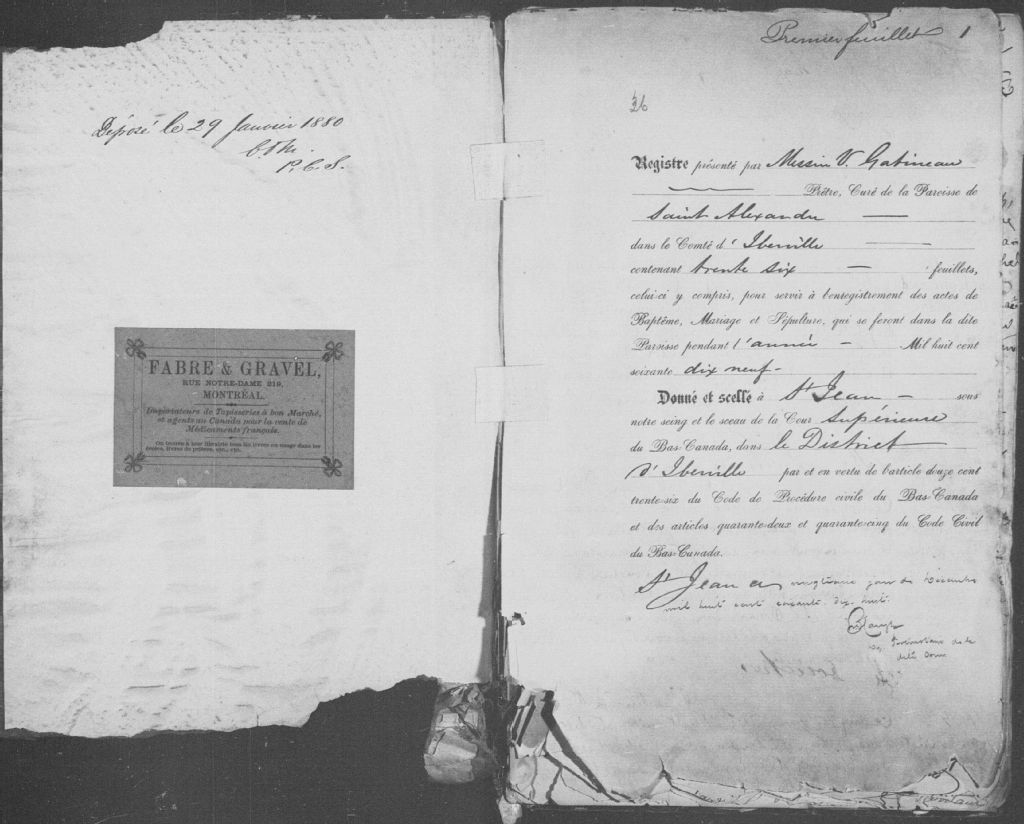 Déposé le 29 Janvier 1880
P.C.S.
FABRE & GRAVEL,
RUE NOTRE-DAME 219,
MONTRÉAL.
Importateurs de Tapisseries à bon Marché,
et agents au Canada pour la vente de
Médicaments français.
On trouve à leur librairie tous les livres en usage dans les
écoles, livres de prières, etc., etc.
Premier feuillet 1
26
Registre présenté par Messire V. Gatineau
Prêtre, Curé de la Paroisse de
Saint Alexandre
dans le Comté d' Iberville
contenant trente six feuillets,
celui-ci y compris, pour servir à l'enregistrement des actes de
Baptême, Mariage et Sépulture, qui se feront dans la dite
Paroisse pendant l'année Mil huit cent
soixante dix neuf-
Donné et scellé à St Jean sous
notre seing et le sceau de la Cour Supérieure
du Bas-Canada, dans le District
d'Iberville par et en vertu de l'article douze cent
trente-six du Code de Procédure civile du Bas-Canada
et des articles quarante-deux et quarante-cinq du Code Civil
du Bas-Canada.
St Jean ce jour de Décembre
mil huit cent soixante dix huit.
de la
dite Cour